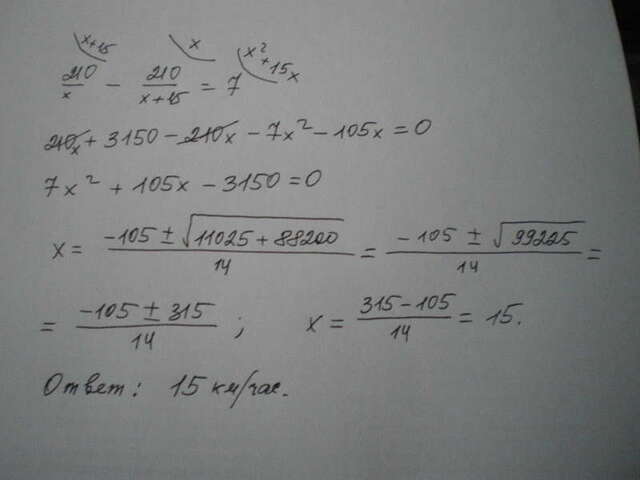 x+15 x x²+15x
210/x − 210/(x+15) = 7
210x + 3150 − 210x − 7x² − 105x = 0
7x² + 105x − 3150 = 0
x = (−105 ± √(11025 + 88200))/14 = (−105 ± √99225)/14 =
= (−105 ± 315)/14 ; x = (315−105)/14 = 15.
Ответ: 15 км/час.